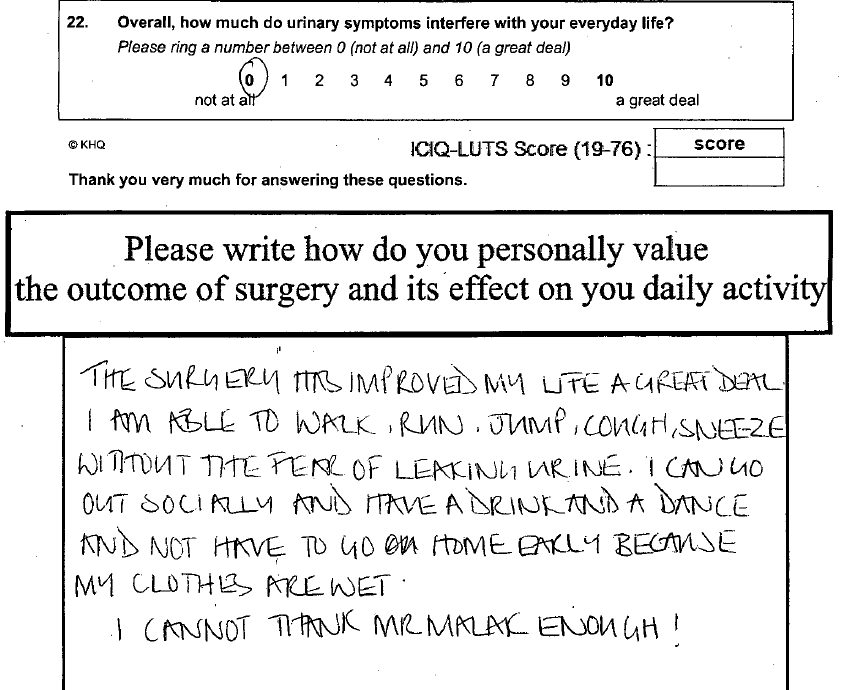 22. Overall, how much do urinary symptoms interfere with your everyday life?
Please ring a number between 0 (not at all) and 10 (a great deal)
0 1 2 3 4 5 6 7 8 9 10
not at all a great deal
© KHQ
ICIQ-LUTS Score (19-76) : score
Thank you very much for answering these questions.
Please write how do you personally value
the outcome of surgery and its effect on you daily activity
THE SURGERY HAS IMPROVED MY LIFE A GREAT DEAL.
I AM ABLE TO WALK, RUN, JUMP, COUGH, SNEEZE
WITHOUT THE FEAR OF LEAKING URINE. I CAN GO
OUT SOCIALLY AND HAVE A DRINK AND A DANCE
AND NOT HAVE TO GO HOME EARLY BECAUSE
MY CLOTHES ARE WET.
I CANNOT THANK MR MALAK ENOUGH!